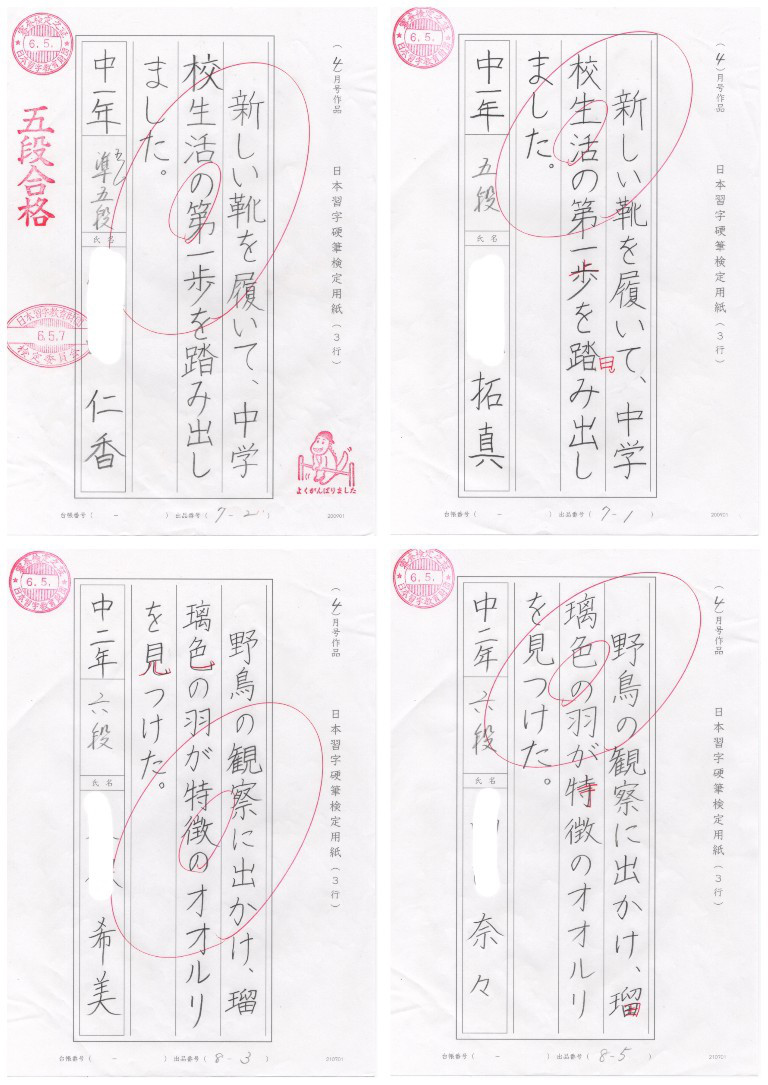 (4)月号作品
日本習字硬筆検定用紙(3行)
新しい靴を履いて、中学
校生活の第一歩を踏み出し
ました。
中一年 準五段
氏名
仁香
五段合格
6.5.
日本習字教育財団
日本習字教育財団
6.5.7
検定委員会
よくがんばりました
台帳番号( - ) 出品番号(7-2)
200901
(4)月号作品
日本習字硬筆検定用紙(3行)
新しい靴を履いて、中学
校生活の第一歩を踏み出し
ました。
中一年 五段
氏名
拓真
6.5.
日本習字教育財団
台帳番号( - ) 出品番号(7-1)
200901
(4)月号作品
日本習字硬筆検定用紙(3行)
野鳥の観察に出かけ、瑠
璃色の羽が特徴のオオルリ
を見つけた。
中二年 六段
氏名
希美
6.5.
日本習字教育財団
台帳番号( - ) 出品番号(8-3)
210701
(4)月号作品
日本習字硬筆検定用紙(3行)
野鳥の観察に出かけ、瑠
璃色の羽が特徴のオオルリ
を見つけた。
中二年 六段
氏名
奈々
6.5.
日本習字教育財団
台帳番号( - ) 出品番号(8-5)
210701